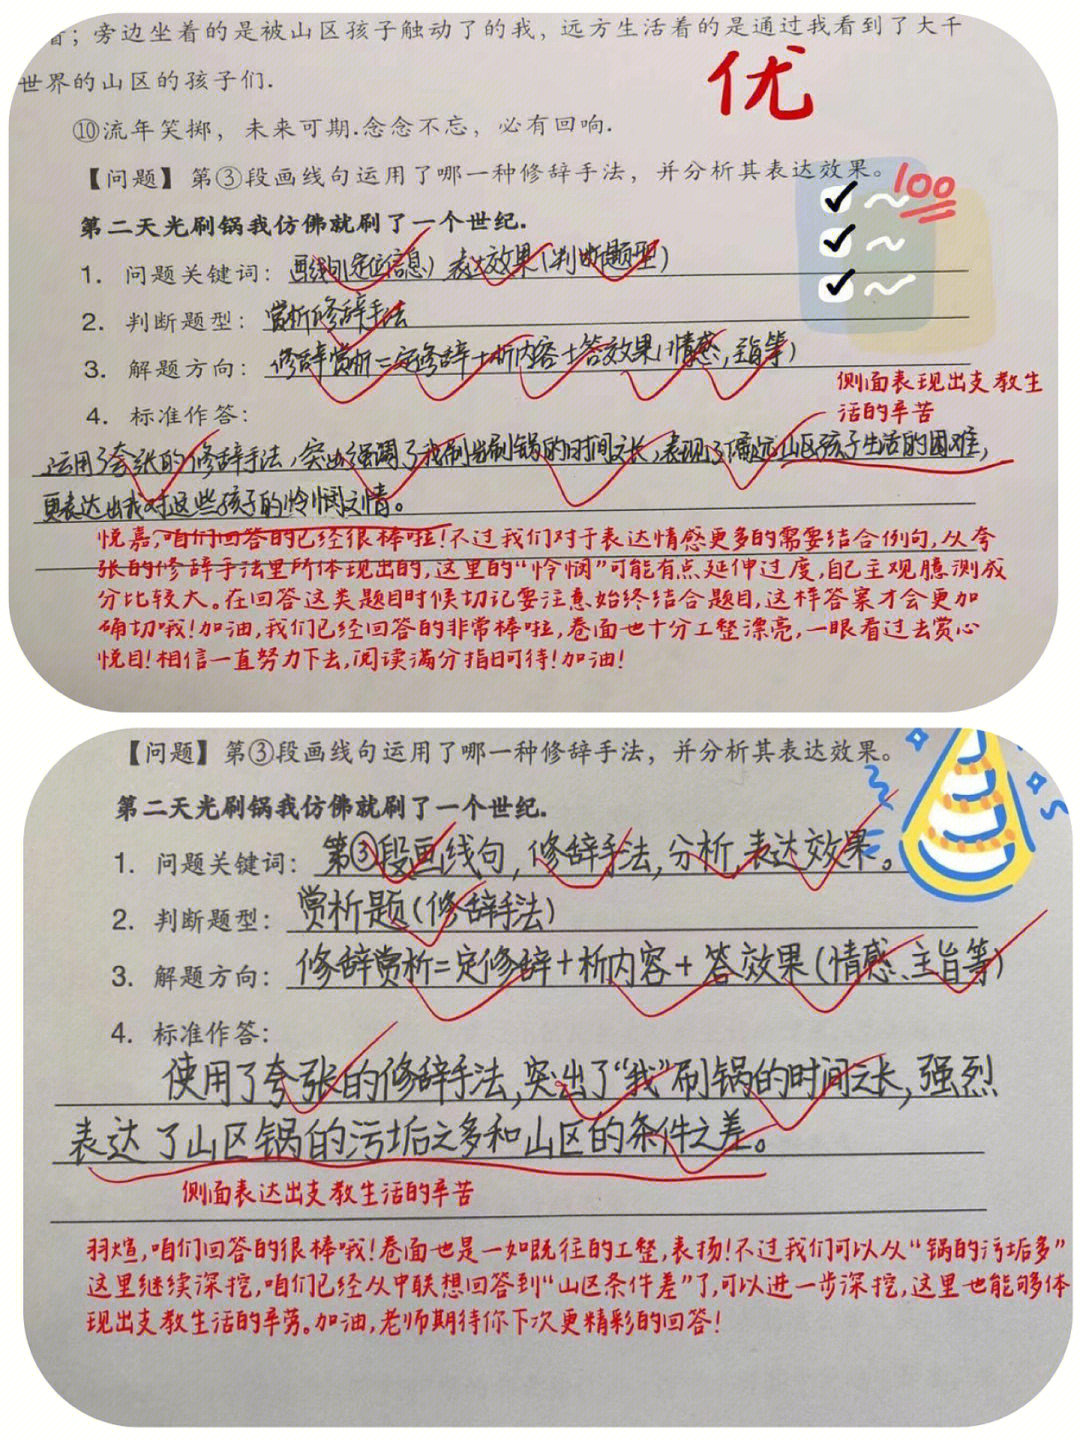 着；旁边坐着的是被山区孩子触动了的我，远方生活着的是通过我看到了大千
世界的山区的孩子们.
⑩流年笑掷，未来可期.念念不忘，必有回响.
优
【问题】第③段画线句运用了哪一种修辞手法，并分析其表达效果。
100
第二天光刷锅我仿佛就刷了一个世纪.
1. 问题关键词：画线句(定位信息) 表达效果(判断题型)
2. 判断题型：赏析修辞手法
3. 解题方向：修辞赏析=定修辞+析内容+答效果(情感,主旨等)
侧面表现出支教生
活的辛苦
4. 标准作答：
运用了夸张的修辞手法,突出强调了我刷锅的时间之长,表现了偏远山区孩子生活的困难,
更表达出我对这些孩子的怜悯之情。
悦嘉,咱们回答的已经很棒啦!不过我们对于表达情感更多的需要结合例句,从夸
张的修辞手法里所体现出的,这里的“怜悯”可能有点延伸过度,自己主观臆测成
分比较大。在回答这类题目时候切记要注意始终结合题目,这样答案才会更加
确切哦!加油,我们已经回答的非常棒啦,卷面也十分工整漂亮,一眼看过去赏心
悦目!相信一直努力下去,阅读满分指日可待!加油!
【问题】第③段画线句运用了哪一种修辞手法，并分析其表达效果。
第二天光刷锅我仿佛就刷了一个世纪.
1. 问题关键词：第③段画线句,修辞手法,分析,表达效果。
2. 判断题型：赏析题(修辞手法)
3. 解题方向：修辞赏析=定修辞+析内容+答效果(情感、主旨等)
4. 标准作答：
使用了夸张的修辞手法,突出了“我”刷锅的时间之长,强烈
表达了山区锅的污垢之多和山区的条件之差。
侧面表达出支教生活的辛苦
羽煊,咱们回答的很棒哦!卷面也是一如既往的工整,表扬!不过我们可以从“锅的污垢多”
这里继续深挖,咱们已经从中联想回答到“山区条件差”了,可以进一步深挖,这里也能够体
现出支教生活的辛劳。加油,老师期待你下次更精彩的回答!